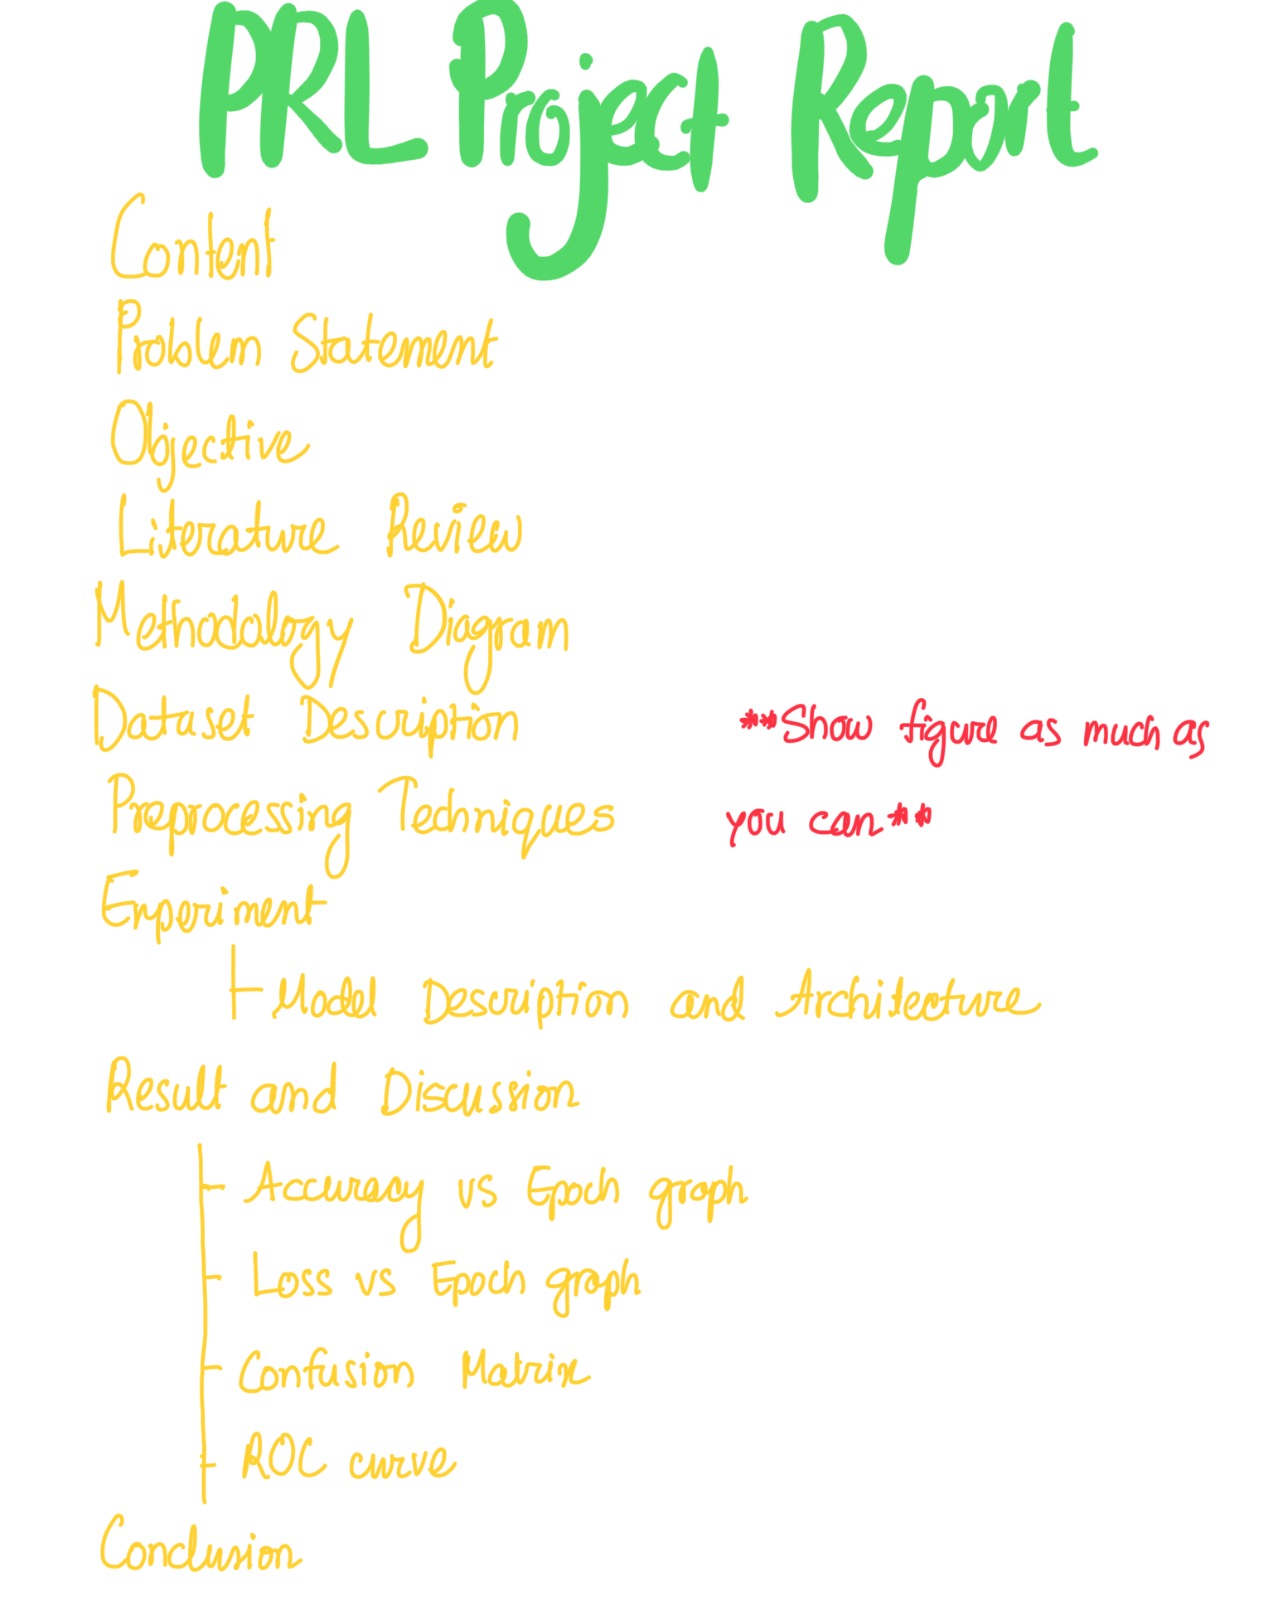 PRL Project Report
Content
Problem Statement
Objective
Literature Review
Methodology Diagram
Dataset Description
**Show figure as much as
you can**
Preprocessing Techniques
Experiment
Model Description and Architecture
Result and Discussion
Accuracy vs Epoch graph
Loss vs Epoch graph
Confusion Matrix
ROC curve
Conclusion